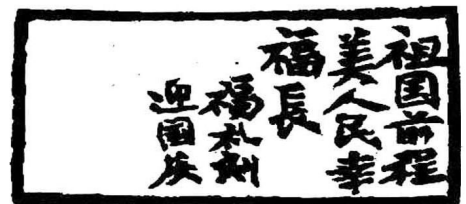 祖国前程
美人民幸
福長
福州刻
迎国庆